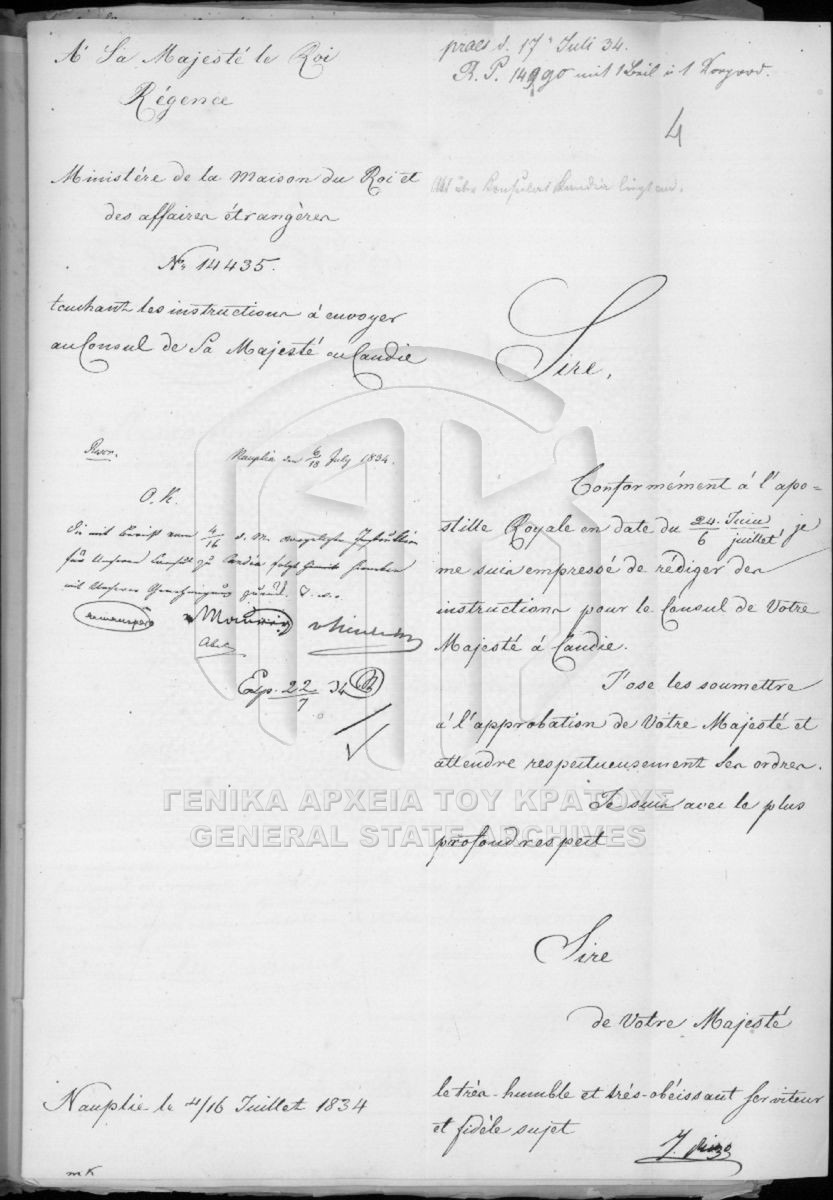 A Sa Majesté le Roi
Régence
Ministére de la Maison du Roi et
des affaires étrangères
Nr 14435.
touchant les instructions à envoyer
au Consul de Sa Majesté en Candie
praes d. 17 Juli 34.
R. P. 14990 mit 1 Beil u 1
4
Sire,
Conformément à l'apo-
stille Royale en date du 24. Juin / 6 juillet, je
me suis empressé de rédiger des
instructions pour le Consul de Votre
Majesté à Candie.
J'ose les soumettre
à l'approbation de Votre Majesté et
attendre respectueusement Ses ordres.
Je suis avec le plus
profond respect
Sire
de Votre Majesté
le très-humble et trés-obéissant serviteur
et fidèle sujet
Nauplia den 6/18 July 1834.
O. K.
Die mit Bericht vom 4/16 d. M. vorgelegte Instruktion
für Unseren Consul zu Candia folgt hierneben
mit Unserer Genehmigung zurück.
Abel
Exp. 22/7 34
Nauplie le 4/16 Juillet 1834
mK
ΓΕΝΙΚΑ ΑΡΧΕΙΑ ΤΟΥ ΚΡΑΤΟΥΣ
GENERAL STATE ARCHIVES